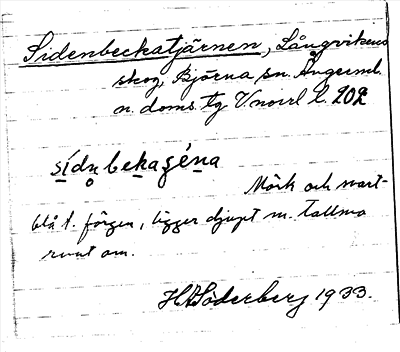 Sidenbeckatjärnen, Långvikens
skog, Björna sn. Ångerml.
n. doms. tg V:norrl l. 202
sídn beka ʒéna
Mörk och svart-
blå t. färgen, ligger djupt m. tallmo
runt om.
H. Söderberg 1933.